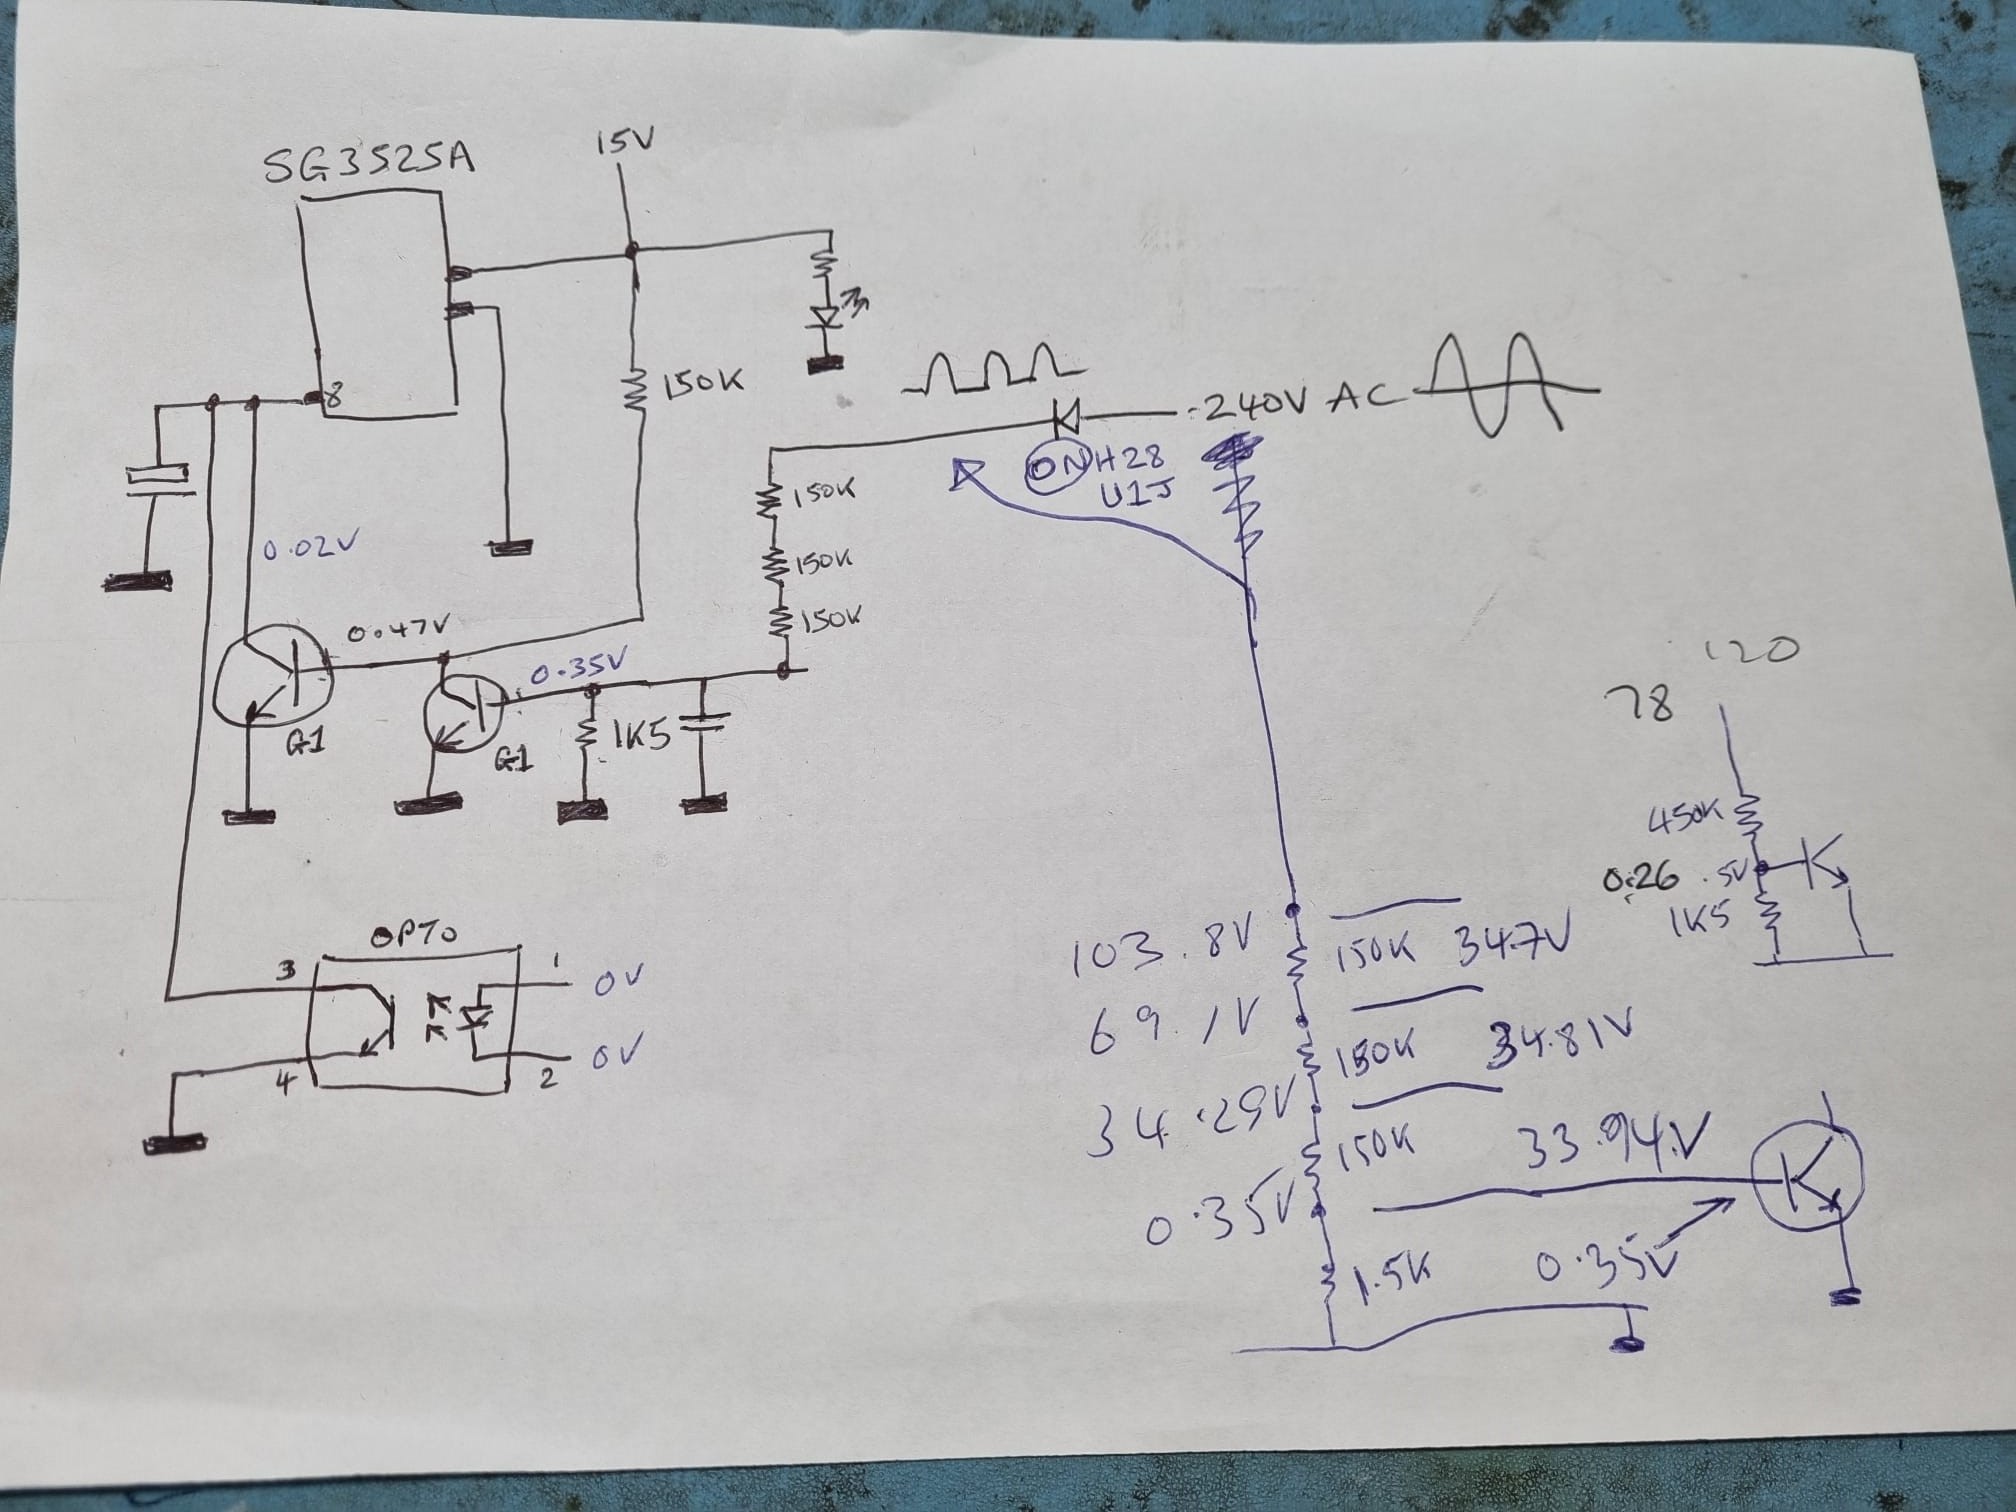 SG3525A
15V
8
150K
240V AC
ON H28
U1J
150K
150K
150K
0.02V
0.47V
0.35V
G1
G1
1K5
120
78
450K
0.26 .5V
1K5
OPTO
3
1
0V
0V
4
2
103.8V
150K 34.7V
69.1V
150K 34.81V
34.29V
150K 33.94V
0.35V
1.5K 0.35V